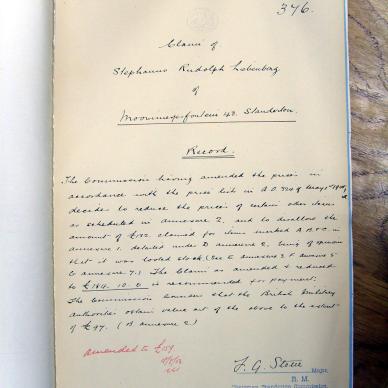 376.
Claim of
Stephanus Rudolph Liebenberg
of
Mooimeisjesfontein 42. Standerton.
Record.
The Commission having amended the prices in
accordance with the price list in A.O. of May
decides to reduce the prices of certain other items
as scheduled in annexure 2, and to disallow the
amount of claimed for items marked A B + C in
annexure 1. detailed under D annexure 2, being of opinion
that it was looted stock (See E annexure 2 + annexure 5
annexure 7.) The Claim as amended & reduced
to £184. 10. 0 is recommended for payment.
The Commission that the British Military
authorities obtain value out of the above to the extent
of £47. (B annexure 2)
amended to £159
F. G. Major.
R. M.